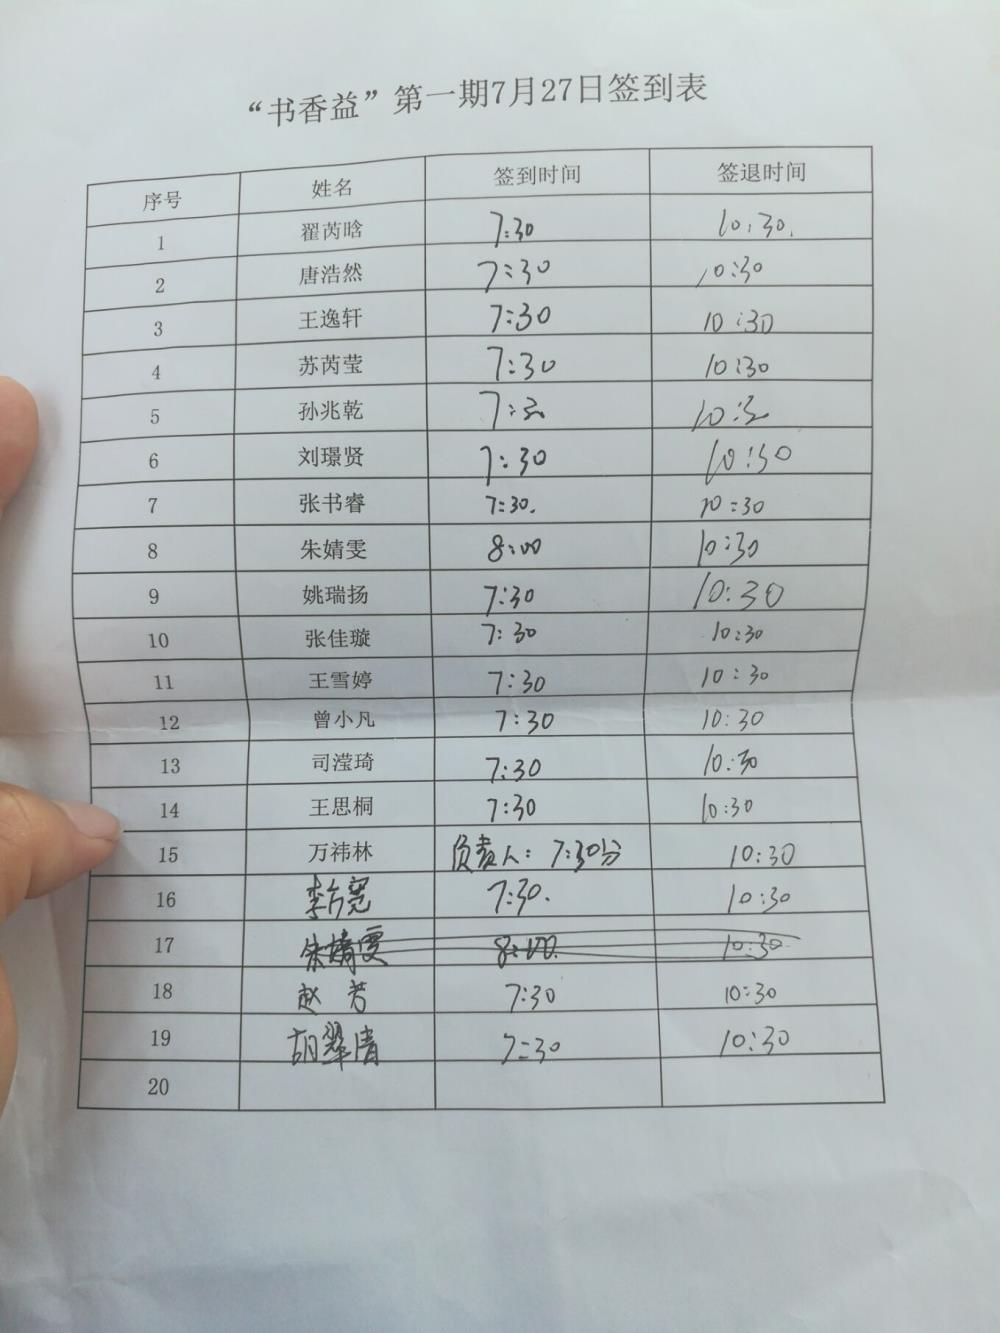 “书香益”第一期7月27日签到表
序号 姓名 签到时间 签退时间
1 翟芮晗 7:30 10:30.
2 唐浩然 7:30 10:30
3 王逸轩 7:30 10:30
4 苏芮莹 7:30 10:30
5 孙兆乾 7:30 10:30
6 刘璟贤 7:30 10:30
7 张书睿 7:30. 10:30
8 朱婧雯 8:00 10:30
9 姚瑞扬 7:30 10:30
10 张佳璇 7:30 10:30
11 王雪婷 7:30 10:30
12 曾小凡 7:30 10:30
13 司滢琦 7:30 10:30
14 王思桐 7:30 10:30
15 万祎林 负责人：7:30分 10:30
16 李 宽 7:30. 10:30
17 朱婧雯 8:00. 10:30
18 赵芳 7:30 10:30
19 胡翠清 7:30 10:30
20